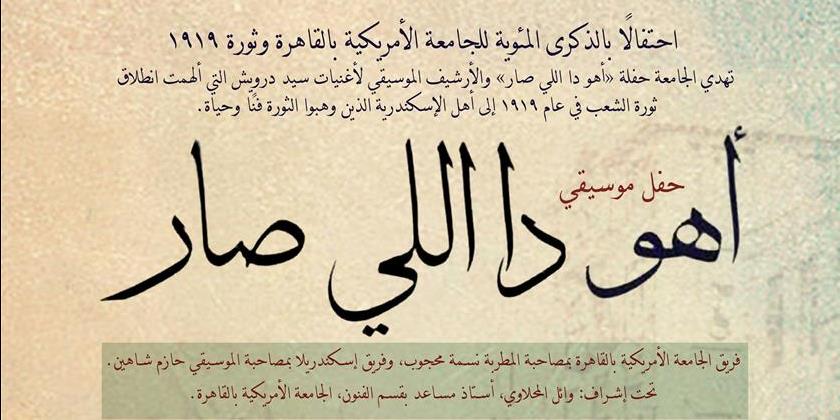 احتفالًا بالذكرى المئوية للجامعة الأمريكية بالقاهرة وثورة ١٩١٩
تهدي الجامعة حفلة «أهو دا اللي صار» والأرشيف الموسيقي لأغنيات سيد درويش التي ألهمت انطلاق
ثورة الشعب في عام ١٩١٩ إلى أهل الإسكندرية الذين وهبوا الثورة فنًا وحياة.
حفل موسيقي
أهو دا اللي صار
فريق الجامعة الأمريكية بالقاهرة بمصاحبة المطربة نسمة محجوب، وفريق إسكندريلا بمصاحبة الموسيقي حازم شاهين.
تحت إشراف: وائل المحلاوي، أستاذ مساعد بقسم الفنون، الجامعة الأمريكية بالقاهرة.